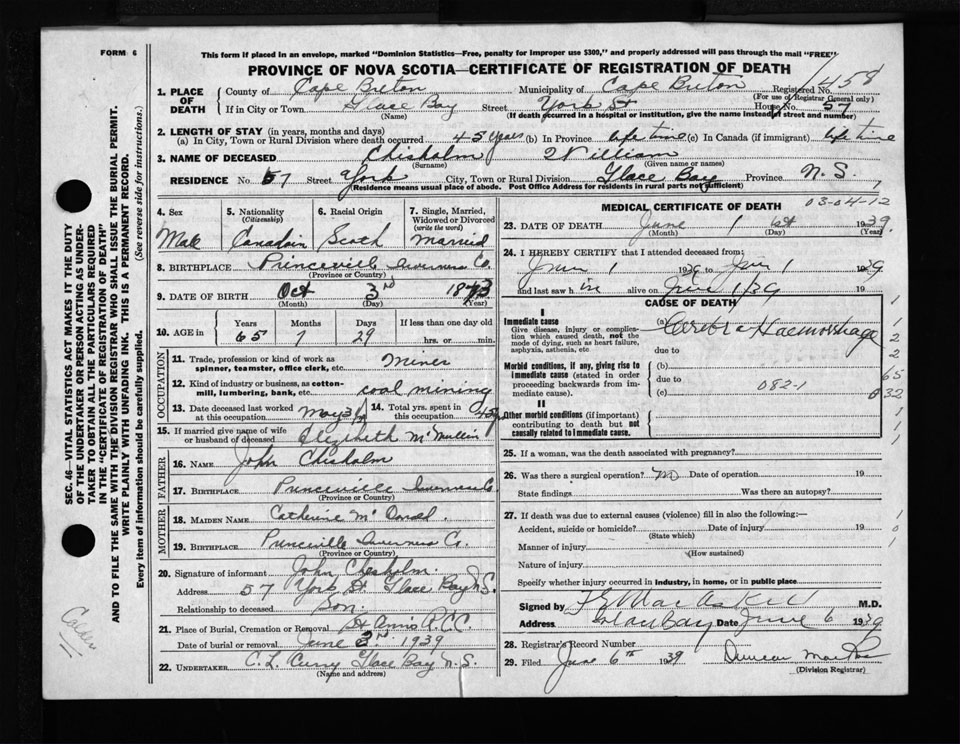 FORM 6
This form if placed in an envelope, marked "Dominion Statistics—Free, penalty for improper use $300," and properly addressed will pass through the mail "FREE"
PROVINCE OF NOVA SCOTIA—CERTIFICATE OF REGISTRATION OF DEATH
458
1. PLACE OF DEATH
County of Cape Breton Municipality of Cape Breton Registered No.
(For use of Registrar General only)
If in City or Town Glace Bay Street York St House No. 57
(Name) (If death occurred in a hospital or institution, give the name instead of street and number)
2. LENGTH OF STAY (in years, months and days)
(a) In City, Town or Rural Division where death occurred 45 years (b) In Province life time (c) In Canada (if immigrant) life time
3. NAME OF DECEASED Chisholm William
(Surname) (Given name or names)
RESIDENCE No. 57 Street York City, Town or Rural Division Glace Bay Province N.S.
(Residence means usual place of abode. Post Office Address for residents in rural parts not sufficient)
4. Sex
Male
5. Nationality (Citizenship)
Canadain
6. Racial Origin
Scotch
7. Single, Married, Widowed or Divorced (write the word)
Married
8. BIRTHPLACE Princeville Inverness Co.
(Province or Country)
9. DATE OF BIRTH Oct 3rd 1873
(Month) (Day) (Year)
10. AGE in
Years Months Days If less than one day old
65 7 29 hrs. or min.
OCCUPATION
11. Trade, profession or kind of work as spinner, teamster, office clerk, etc. Miner
12. Kind of industry or business, as cotton-mill, lumbering, bank, etc. coal mining
13. Date deceased last worked at this occupation May 31 14. Total yrs. spent in this occupation 45 y
15. If married give name of wife or husband of deceased Elizabeth McMullin
FATHER
16. NAME John Chisholm
17. BIRTHPLACE Princeville Inverness Co.
(Province or Country)
MOTHER
18. MAIDEN NAME Catherine McDonald
19. BIRTHPLACE Princeville Inverness Co.
(Province or Country)
20. Signature of informant John Chisholm.
Address 57 York St. Glace Bay N.S.
Relationship to deceased Son.
21. Place of Burial, Cremation or Removal St Anns R.C.C.
Date of burial or removal June 3rd 1939
22. UNDERTAKER C. L. Curry Glace Bay N.S.
(Name and address)
MEDICAL CERTIFICATE OF DEATH
03-04-12
23. DATE OF DEATH June 1 1939.
(Month) (Day) (Year)
24. I HEREBY CERTIFY that I attended deceased from:
June 1 1939 to June 1 1939
and last saw him alive on June 1/39 19
CAUSE OF DEATH
I
Immediate cause
Give disease, injury or complication which caused death, not the mode of dying, such as heart failure, asphyxia, asthenia, etc
(a) Cerebral Haemorrhage
due to
Morbid conditions, if any, giving rise to immediate cause (stated in order proceeding backwards from immediate cause).
(b)
due to 082-1
(c)
II
Other morbid conditions (if important) contributing to death but not causally related to immediate cause.
1
2
2
65
032
1
1
1
25. If a woman, was the death associated with pregnancy?
26. Was there a surgical operation? no Date of operation 19
State findings Was there an autopsy?
27. If death was due to external causes (violence) fill in also the following:—
Accident, suicide or homicide? Date of injury 19
(State which)
Manner of injury
(How sustained)
Nature of injury
Specify whether injury occurred in industry, in home, or in public place
1
0
1
Signed by MacAskill M.D.
Address Glace Bay Date June 6 1939
28. Registrar's Record Number
29. Filed June 6th 1939 Duncan
(Division Registrar)
SEC. 46—VITAL STATISTICS ACT MAKES IT THE DUTY
OF THE UNDERTAKER OR PERSON ACTING AS UNDER-
TAKER TO OBTAIN ALL THE PARTICULARS REQUIRED
IN THE "CERTIFICATE OF REGISTRATION OF DEATH"
AND TO FILE THE SAME WITH THE DIVISION REGISTRAR WHO SHALL ISSUE THE BURIAL PERMIT.
WRITE PLAINLY WITH UNFADING INK. THIS IS A PERMANENT RECORD.
Every item of information should be carefully supplied. (See reverse side for instructions.)